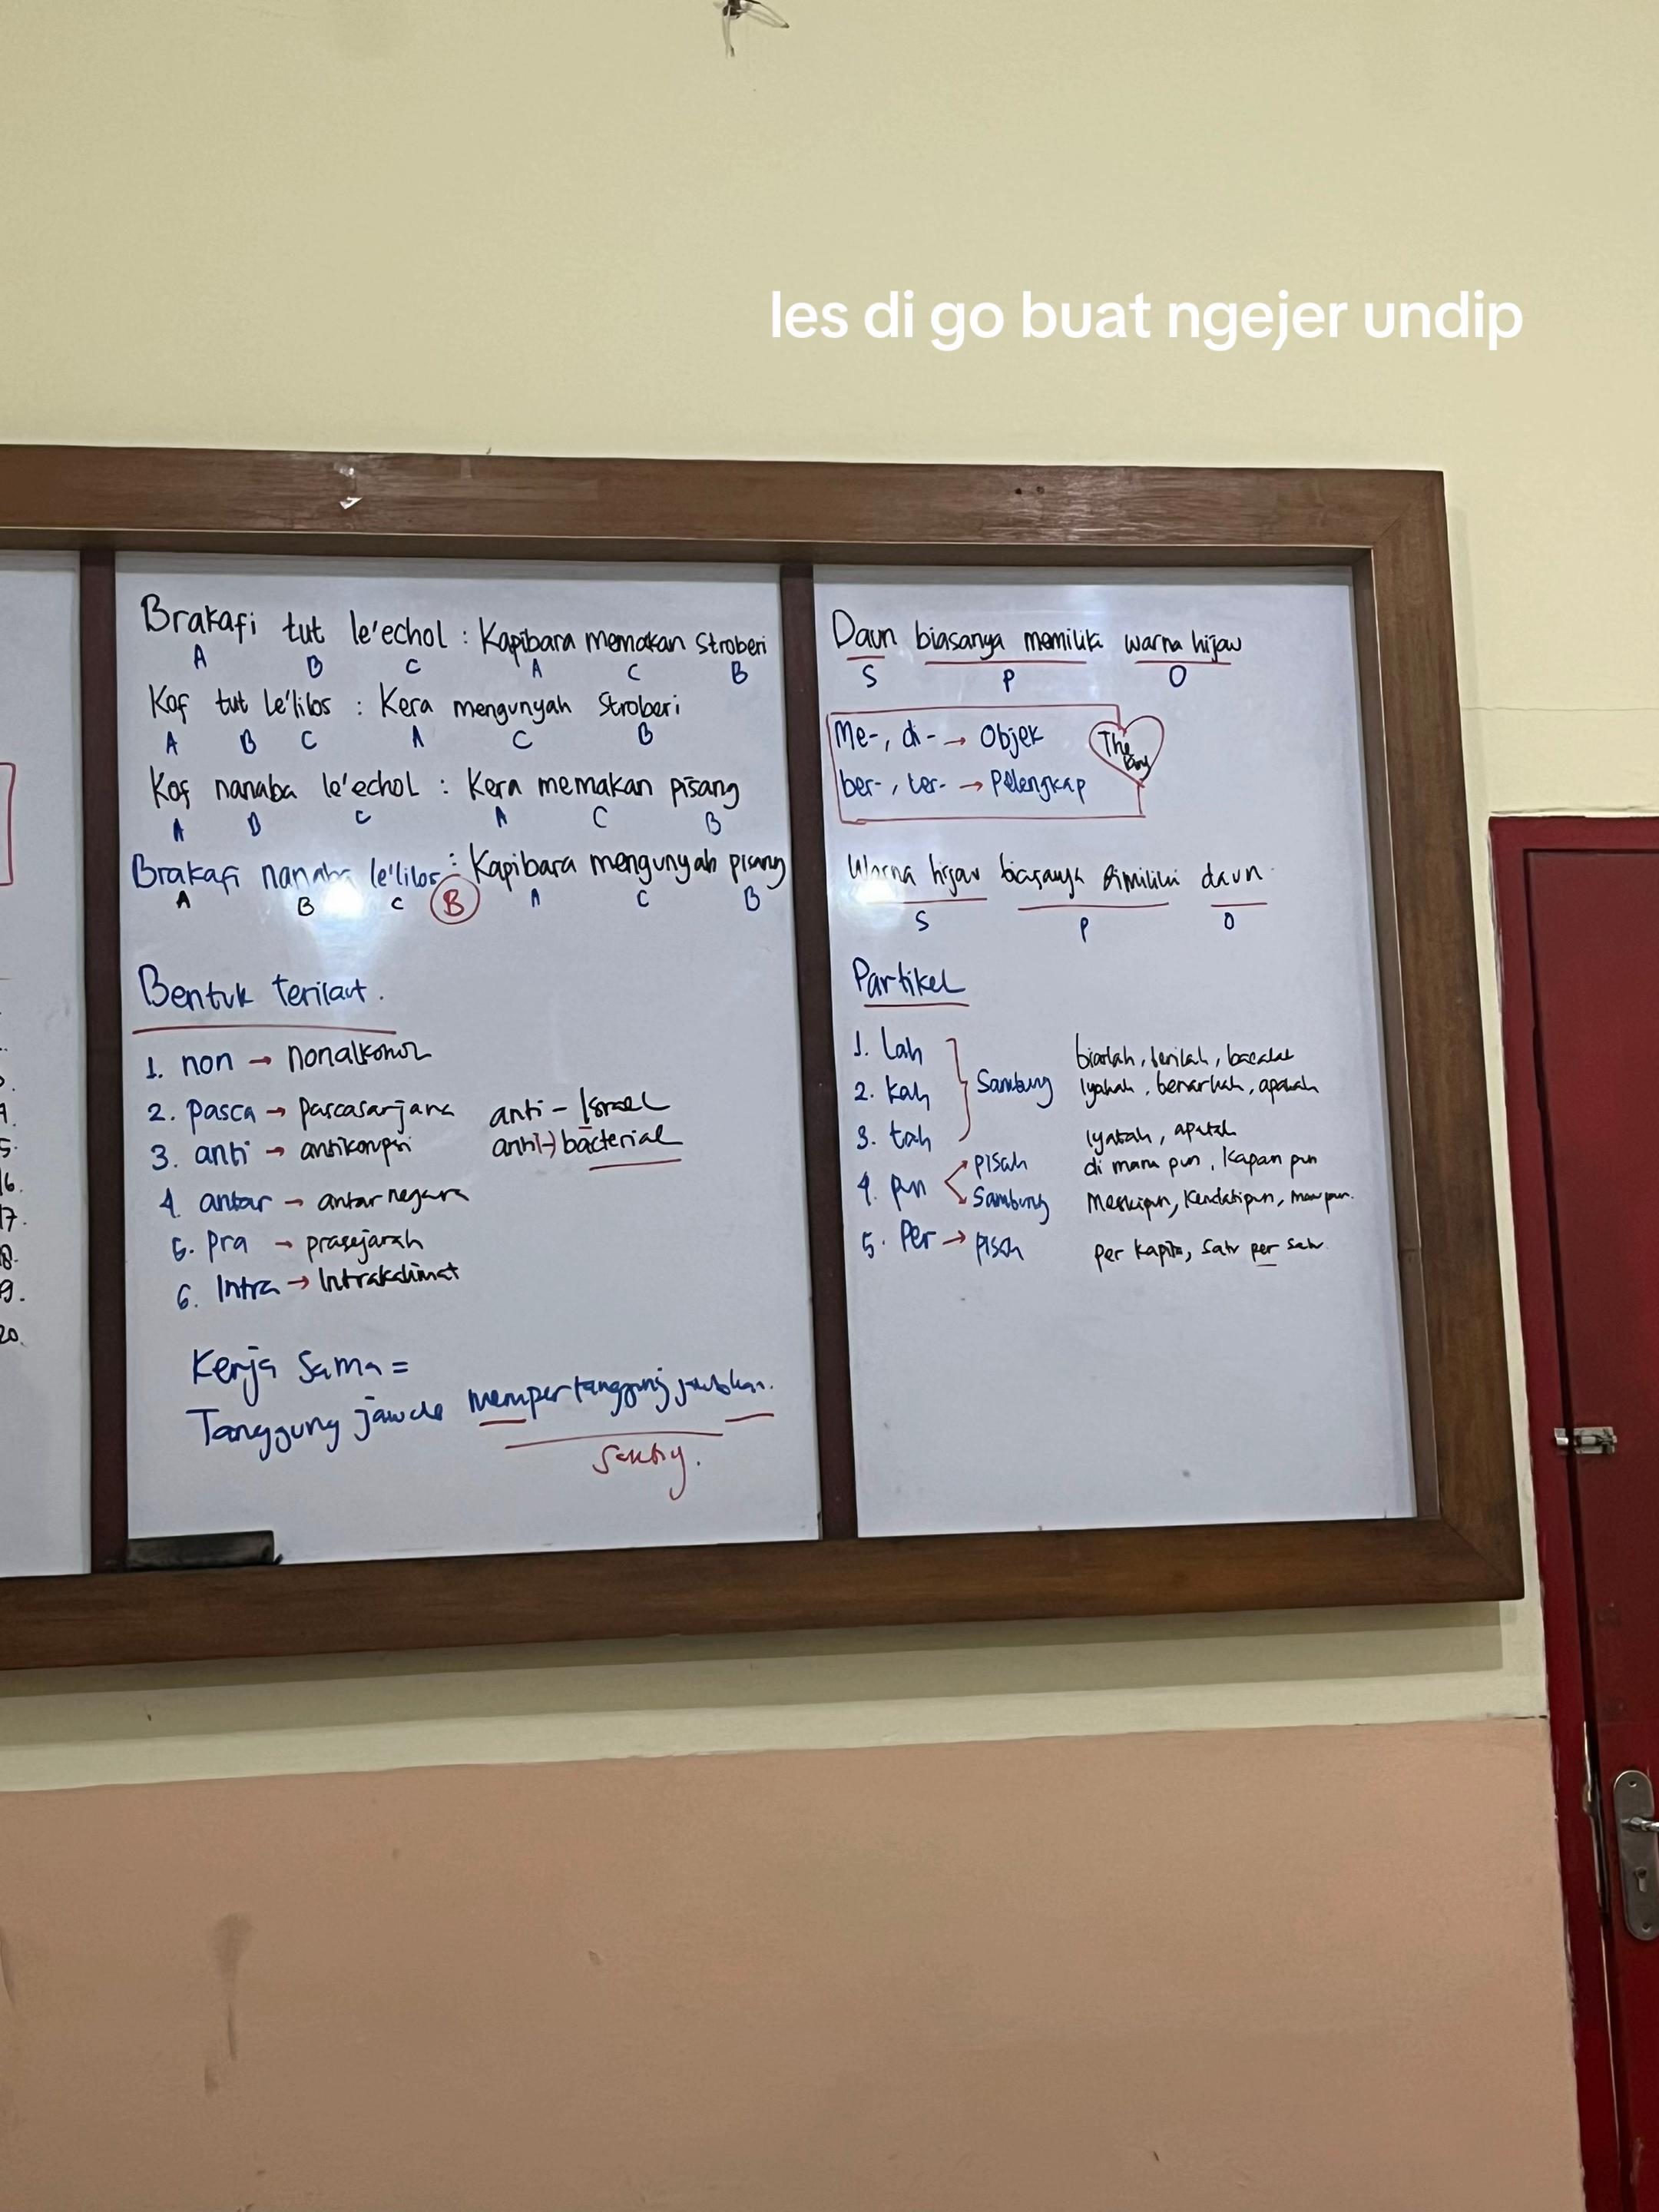 les di go buat ngejer undip
Brakafi tut le'echol : Kapibara memakan Stroberi
A B C A C B
Kof tut le'lilos : Kera mengunyah Stroberi
A B C A C B
Kof nanaba le'echol : Kera memakan pisang
A B C A C B
Brakafi nanaba le'lilos : Kapibara mengunyah pisang
A B C B A C B
Bentuk terikat.
1. non → nonalkohol
2. pasca → pascasarjana anti - Israel
3. anti → antikorupsi anti-bacterial
4. antar → antar negara
5. pra → prasejarah
6. Intra → Intrakalimat
Kerja Sama =
Tanggung jawab mempertanggungjawabkan.
Daun biasanya memiliki warna hijau
S P O
Me-, di- → Objek
The
ber-, ter- → Pelengkap
Warna hijau biasanya dimiliki daun
S P O
Partikel
1. lah
2. kah
3. tah
Sambung
biarlah,
iyakah, benarkah, apakah
iyatah, apatah
4. pun
pisah
di mana pun, kapan pun
Sambung
Meskipun, Kendatipun, maupun.
5. Per → pisah per kapita, satu per satu
5.
16.
17.
18.
19.
20.